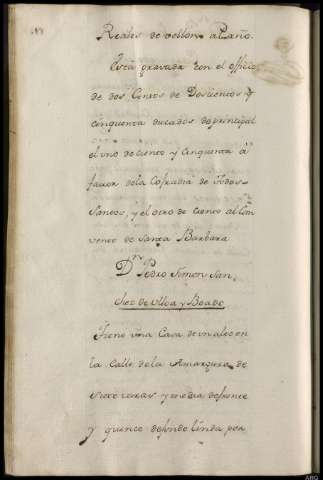 Reales de vellon al año.
Está gravada con el officio
de dos Censos de Doscientos y
cinquenta ducados de principal
el uno de ciento y cinquenta á
favor de la Cofradia de todos
Santos, y el otro de ciento al Com
vento de Santa Barbara
Dn Pedro Simon San
de Ulloa y Boado
Tiene una Casa de un alto en
la Calle de la Amargura de
siete varas y media de frente
y quince de fondo linda por
ARG